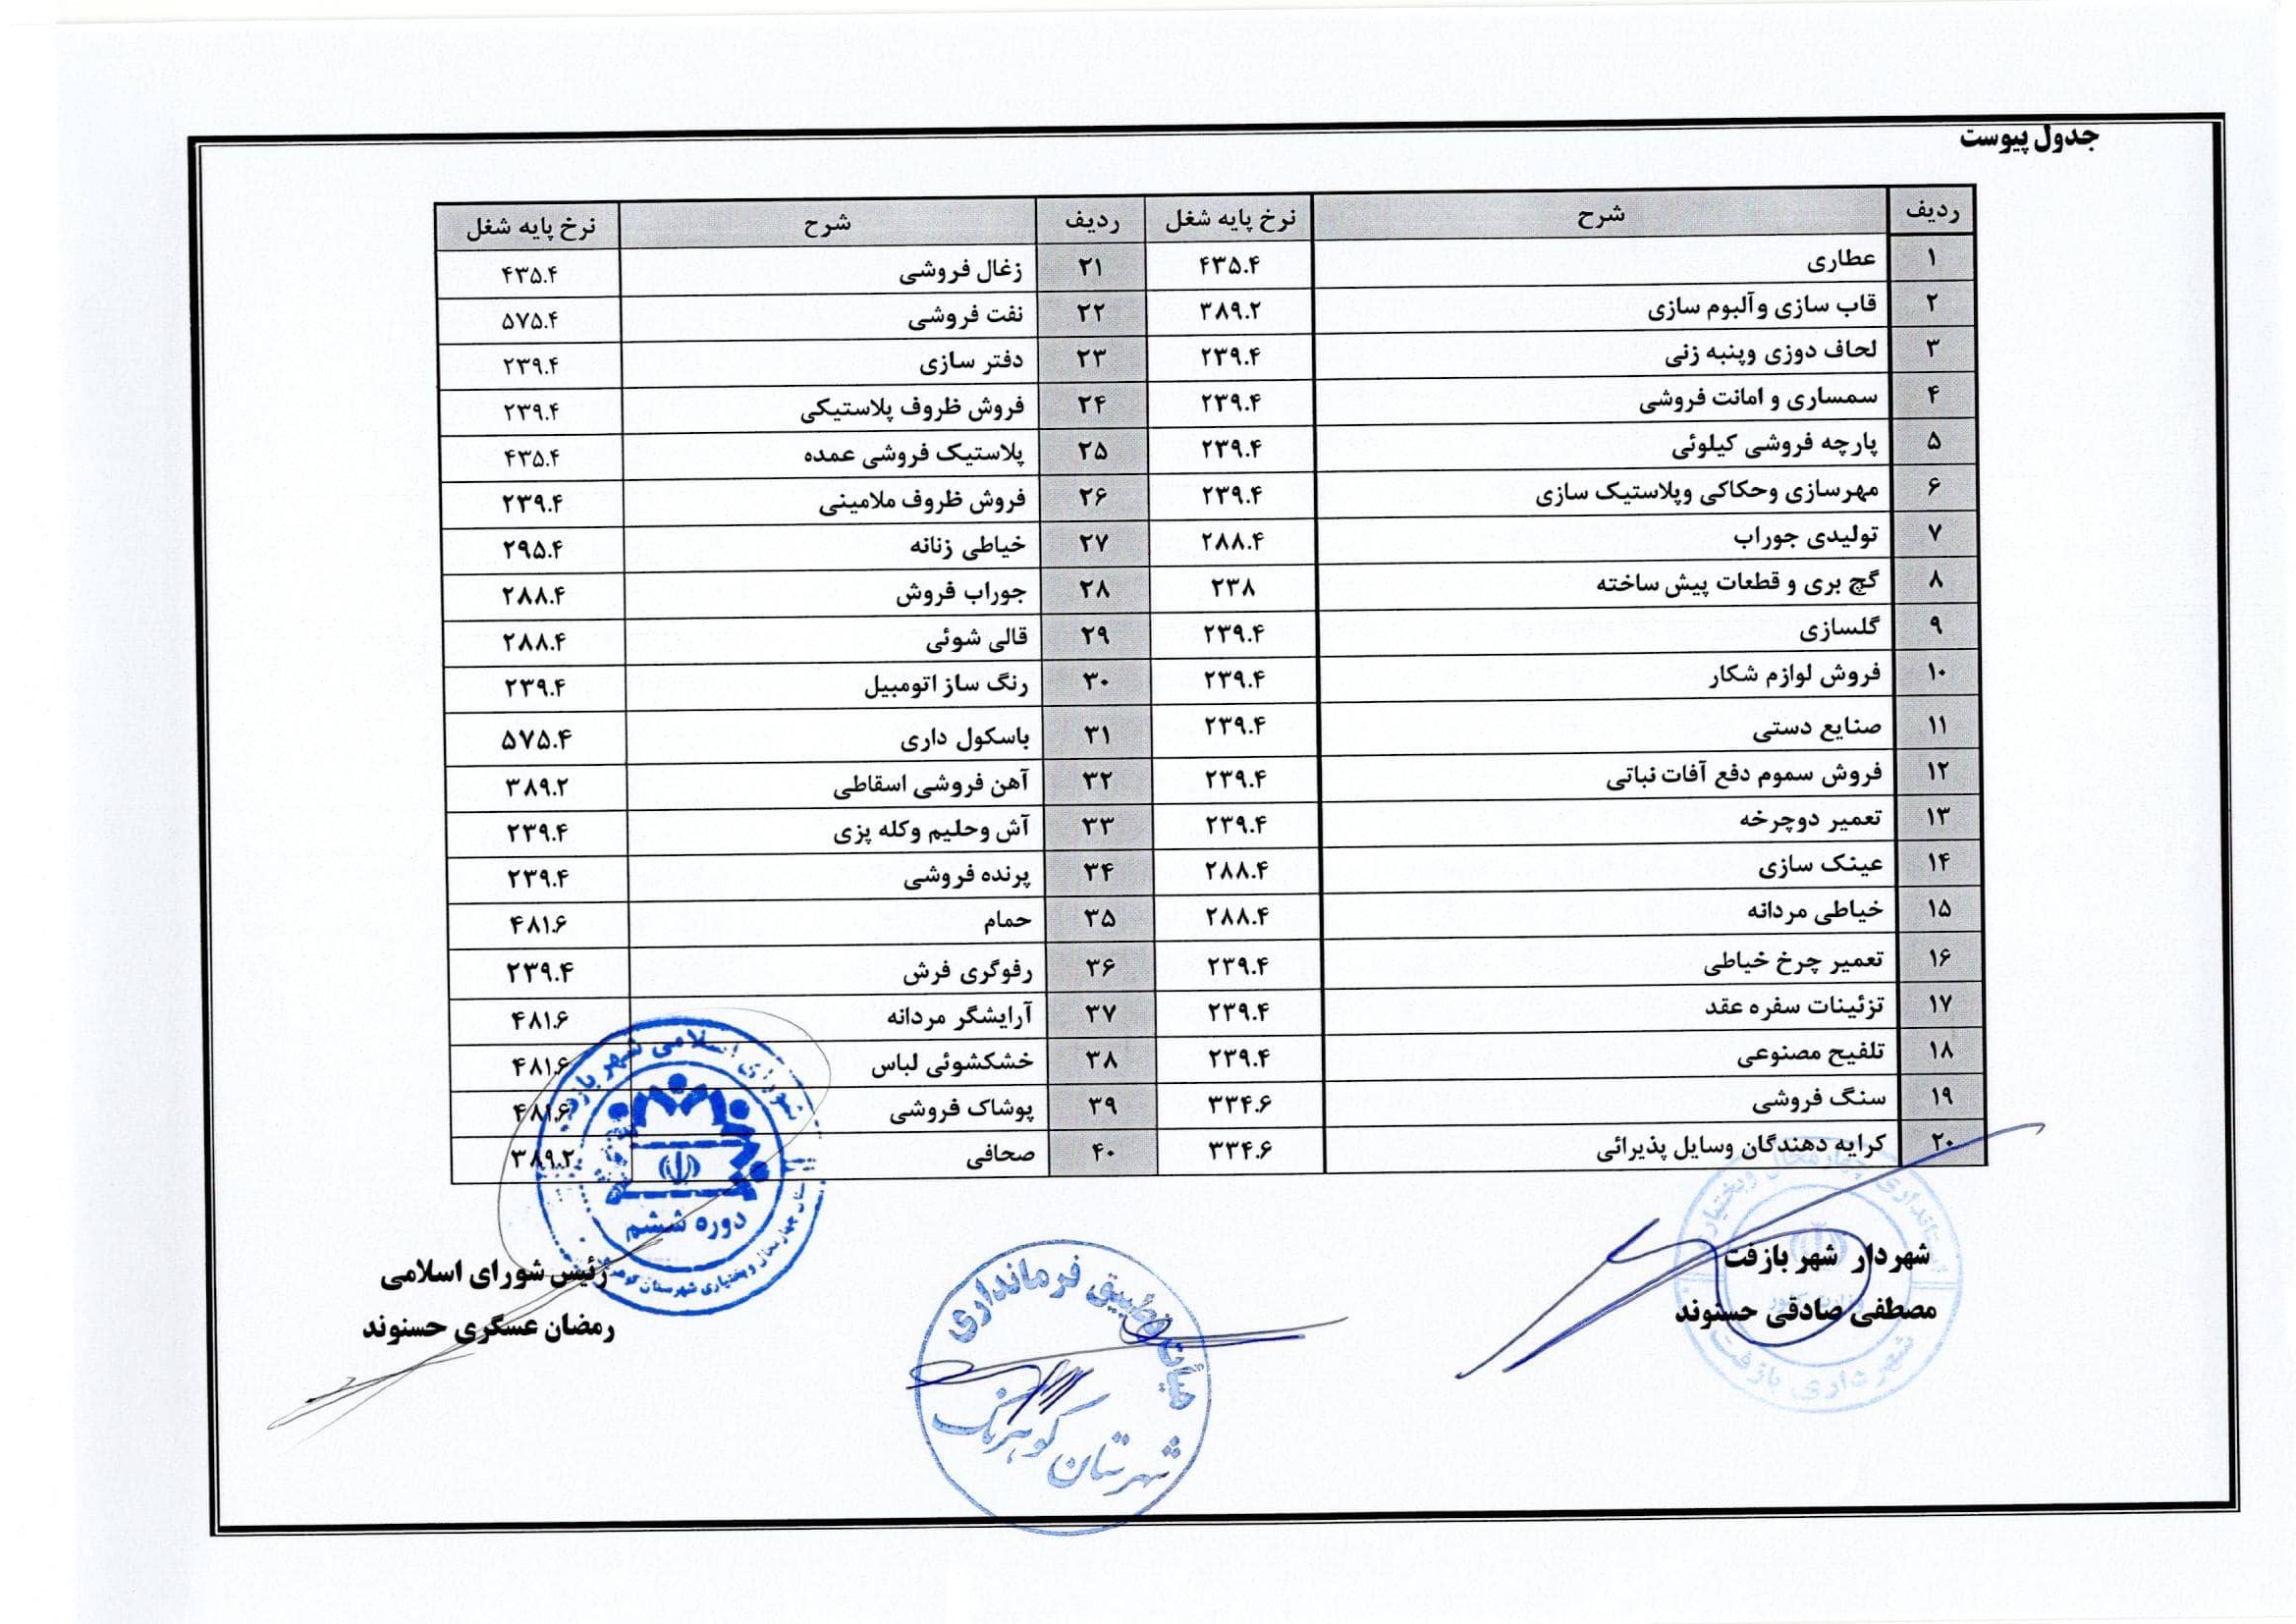 جدول پیوست
ردیف شرح نرخ پایه شغل ردیف شرح نرخ پایه شغل
۱ عطاری ۴۳۵.۴ ۲۱ زغال فروشی ۴۳۵.۴
۲ قاب سازی وآلبوم سازی ۳۸۹.۲ ۲۲ نفت فروشی ۵۷۵.۴
۳ لحاف دوزی وپنبه زنی ۲۳۹.۴ ۲۳ دفتر سازی ۲۳۹.۴
۴ سمساری و امانت فروشی ۲۳۹.۴ ۲۴ فروش ظروف پلاستیکی ۲۳۹.۴
۵ پارچه فروشی کیلوئی ۲۳۹.۴ ۲۵ پلاستیک فروشی عمده ۴۳۵.۴
۶ مهرسازی وحکاکی وپلاستیک سازی ۲۳۹.۴ ۲۶ فروش ظروف ملامینی ۲۳۹.۴
۷ تولیدی جوراب ۲۸۸.۴ ۲۷ خیاطی زنانه ۲۹۵.۴
۸ گچ بری و قطعات پیش ساخته ۲۳۸ ۲۸ جوراب فروش ۲۸۸.۴
۹ گلسازی ۲۳۹.۴ ۲۹ قالی شوئی ۲۸۸.۴
۱۰ فروش لوازم شکار ۲۳۹.۴ ۳۰ رنگ ساز اتومبیل ۲۳۹.۴
۱۱ صنایع دستی ۲۳۹.۴ ۳۱ باسکول داری ۵۷۵.۴
۱۲ فروش سموم دفع آفات نباتی ۲۳۹.۴ ۳۲ آهن فروشی اسقاطی ۳۸۹.۲
۱۳ تعمیر دوچرخه ۲۳۹.۴ ۳۳ آش وحلیم وکله پزی ۲۳۹.۴
۱۴ عینک سازی ۲۸۸.۴ ۳۴ پرنده فروشی ۲۳۹.۴
۱۵ خیاطی مردانه ۲۸۸.۴ ۳۵ حمام ۴۸۱.۶
۱۶ تعمیر چرخ خیاطی ۲۳۹.۴ ۳۶ رفوگری فرش ۲۳۹.۴
۱۷ تزئینات سفره عقد ۲۳۹.۴ ۳۷ آرایشگر مردانه ۴۸۱.۶
۱۸ تلفیح مصنوعی ۲۳۹.۴ ۳۸ خشکشوئی لباس ۴۸۱.۶
۱۹ سنگ فروشی ۳۳۴.۶ ۳۹ پوشاک فروشی ۴۸۱.۶
۲۰ کرایه دهندگان وسایل پذیرائی ۳۳۴.۶ ۴۰ صحافی ۳۸۹.۲
شورای اسلامی شهر بازفت
دوره ششم
استان چهارمحال و بختیاری شهرستان کوهرنگ
شهردار شهر بازفت
مصطفی صادقی حسنوند
شهرداری بازفت
هیأت تطبیق فرمانداری
شهرستان کوهرنگ
رئیس شورای اسلامی
رمضان عسگری حسنوند